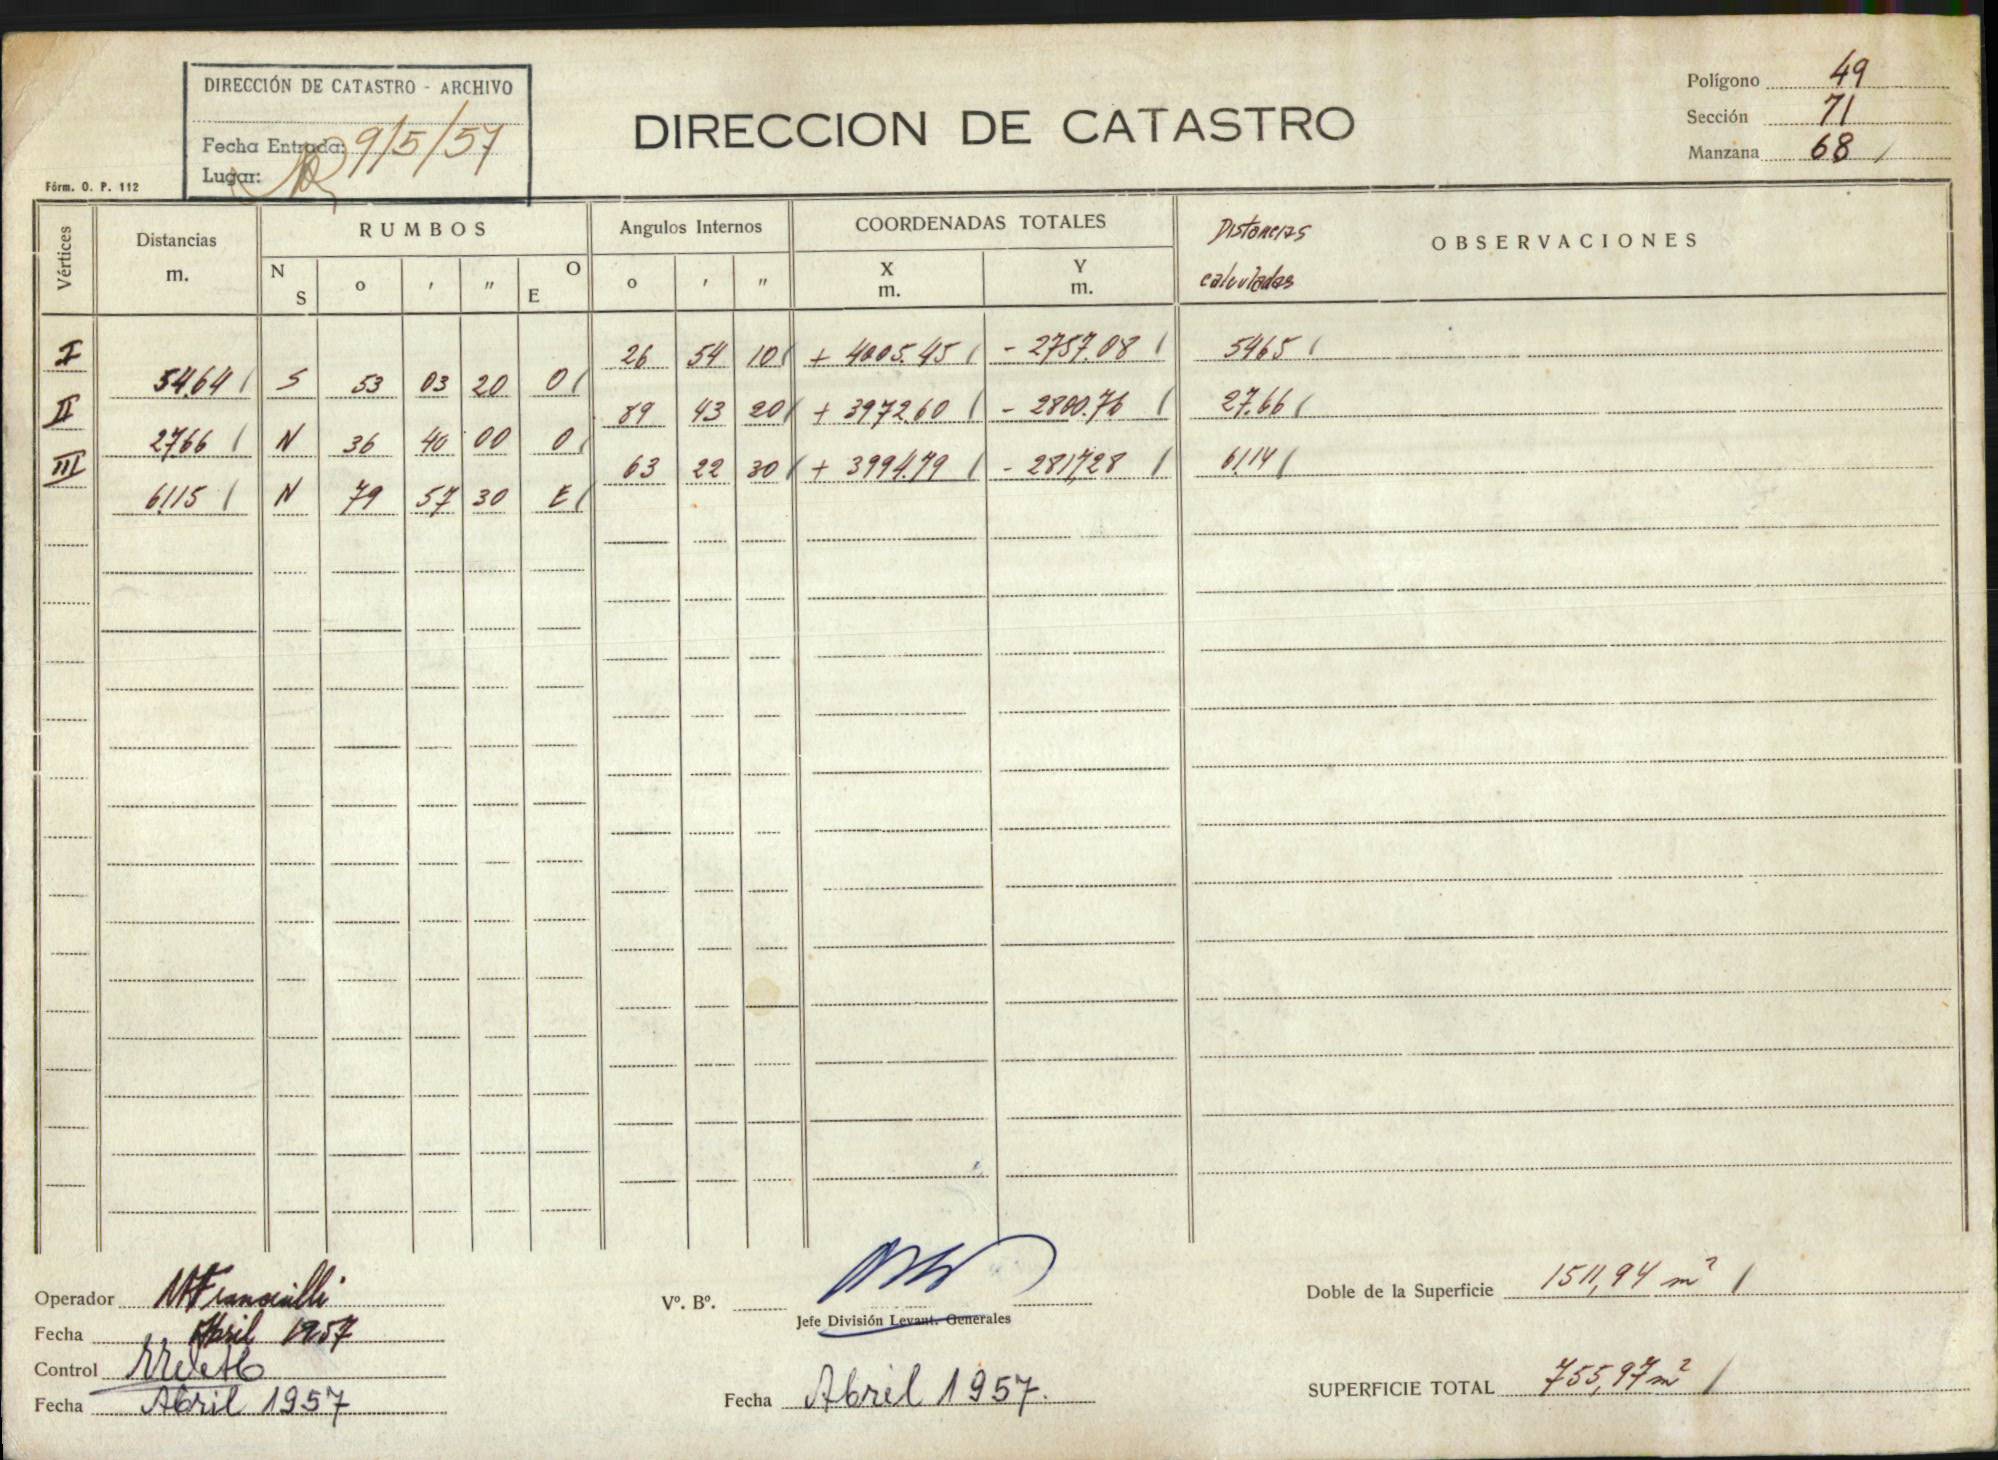 DIRECCIÓN DE CATASTRO - ARCHIVO
Fecha Entrada: 9/5/57
Lugar:
Fórm. O. P. 112
DIRECCION DE CATASTRO
Polígono 49
Sección 71
Manzana 68 /
Vértices Distancias m. RUMBOS Angulos Internos COORDENADAS TOTALES Distancias calculadas OBSERVACIONES
N S o ' " O E o ' " X m. Y m.
I 26 54 10 / + 4005.45 / - 2757.08 / 54.65 /
54.64 / S 53 03 20 O /
II 89 43 20 / + 3972.60 / - 2800.76 / 27.66 /
27.66 / N 36 40 00 O /
III 63 22 30 / + 3994.79 / - 2817,28 / 61.14 /
61.15 / N 79 57 30 E /
Operador
Fecha Abril 1957
Control
Fecha Abril 1957
Vº. Bº.
Jefe División Levant. Generales
Fecha Abril 1957.
Doble de la Superficie 1511,94 m² /
SUPERFICIE TOTAL 755,97 m² /